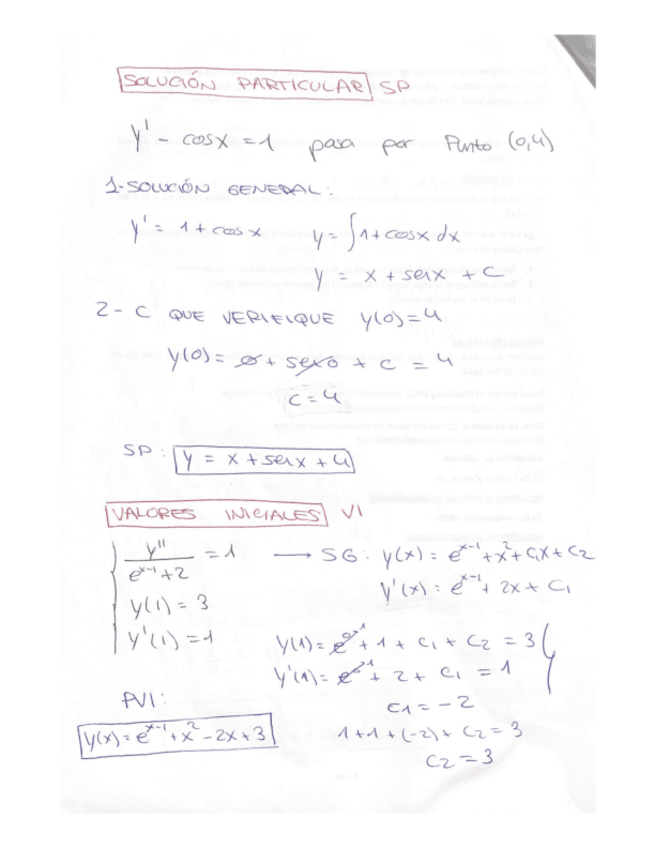 SOLUCIÓN PARTICULAR SP
y' - cosx = 1 pasa por Punto (0,4)
1-SOLUCIÓN GENERAL:
y' = 1 + cos x y = ∫1+cosx dx
y = x + senx + C
2 - C QUE VERIFIQUE y(0)=4
y(0) = 0 + sen0 + c = 4
C = 4
SP: y = x + senx + 4
VALORES INICIALES VI
y''/(e^(x-1)+2) = 1 → SG: y(x) = e^(x-1) + x² + C1x + C2
y'(x) = e^(x-1) + 2x + C1
y(1) = 3
y'(1) = 1
y(1) = e^(0→1) + 1 + C1 + C2 = 3
y'(1) = e^(→1) + 2 + C1 = 1
C1 = -2
PVI:
y(x) = e^(x-1) + x² - 2x + 3
1+1+(-2)+C2 = 3
C2 = 3